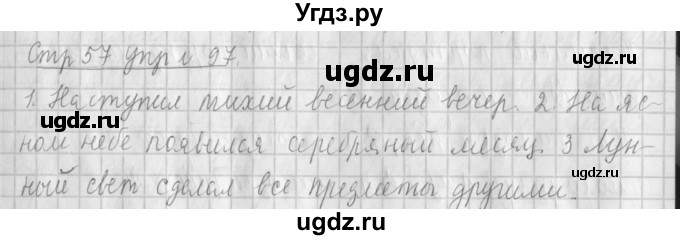 Угдз.ру
Стр 57 упр № 97.
ugdz.ru ugdz.ru
1. Наступил тихий весенний вечер. 2. На яс-
ugdz.ru
ном небе появился серебряный месяц. 3 Лун-
ugdz.ru
ный свет сделал все предметы другими.
ugdz.ru ugdz.ru